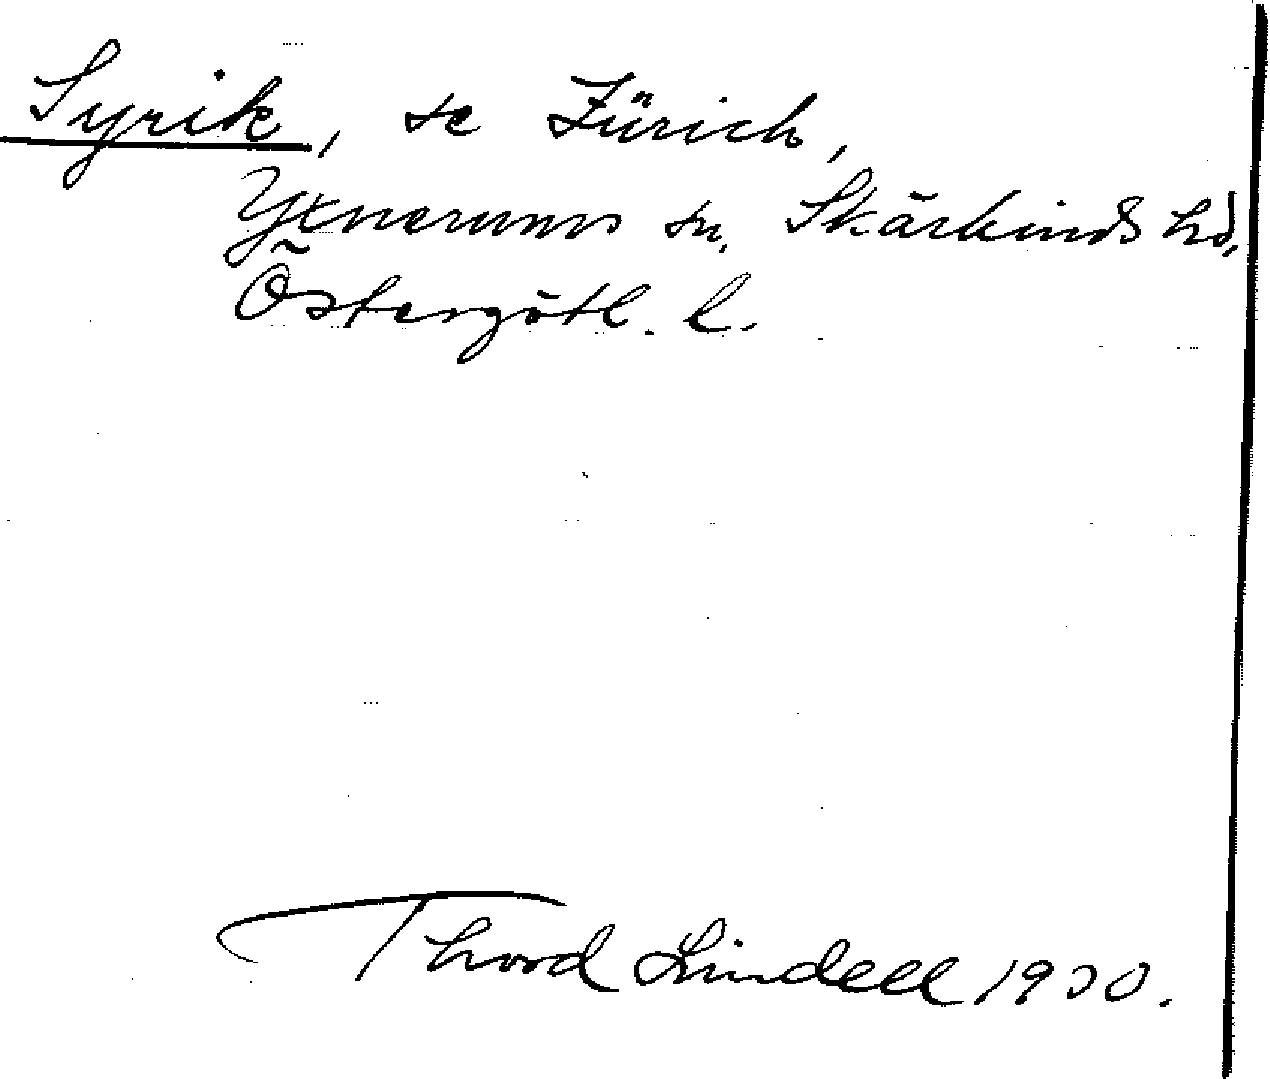 Syrik, se Zürich,
Yxnerums sn, Skärkinds hd,
Östergötl. l.
Thord Lindell 1930.